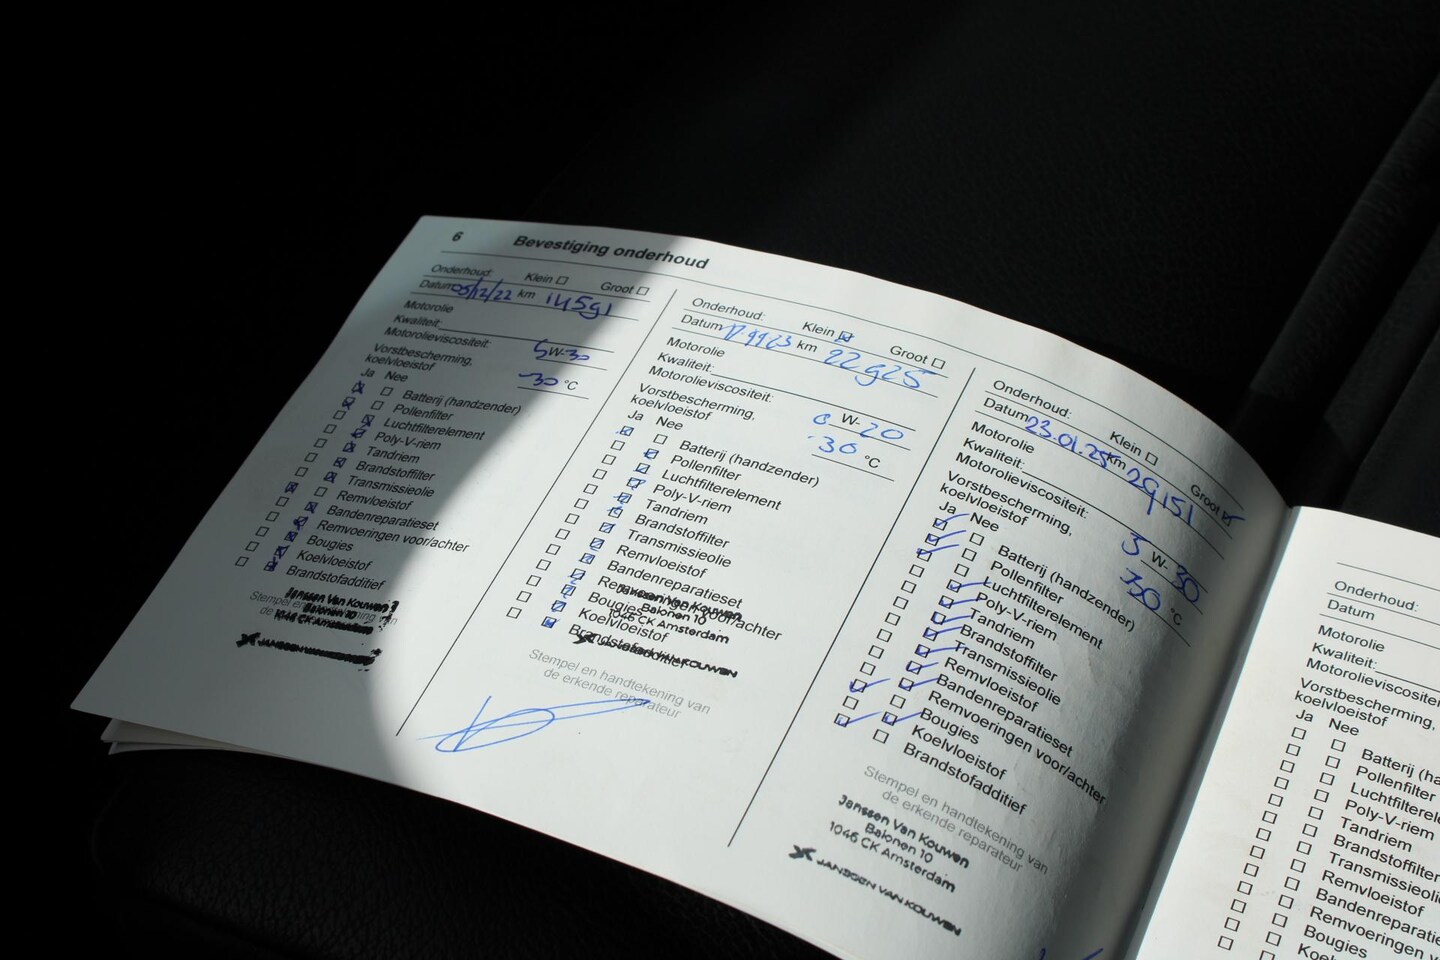 6 Bevestiging onderhoud
Onderhoud: Klein Groot
Datum 05/12/22 km 14591
Motorolie
Kwaliteit:
Motorolieviscositeit: 5W-30
Vorstbescherming,
koelvloeistof -30 °C
Ja Nee
Batterij (handzender)
Pollenfilter
Luchtfilterelement
Poly-V-riem
Tandriem
Brandstoffilter
Transmissieolie
Remvloeistof
Bandenreparatieset
Remvoeringen voor/achter
Bougies
Koelvloeistof
Brandstofadditief
Janssen Van Kouwen
Balonen 10
1046 CK Amsterdam
JANSSEN VAN KOUWEN
Onderhoud: Klein Groot
Datum km 22925
Motorolie
Kwaliteit:
Motorolieviscositeit: 0 W-20
Vorstbescherming,
koelvloeistof -30 °C
Ja Nee
Batterij (handzender)
Pollenfilter
Luchtfilterelement
Poly-V-riem
Tandriem
Brandstoffilter
Transmissieolie
Remvloeistof
Bandenreparatieset
Remvoeringen voor/achter
Bougies
Koelvloeistof
Brandstofadditief
Janssen Van Kouwen
Balonen 10
1046 CK Amsterdam
JANSSEN VAN KOUWEN
Stempel en handtekening van
de erkende reparateur
Onderhoud: Klein Groot
Datum 23.01.25 km 29151
Motorolie
Kwaliteit:
Motorolieviscositeit: W-30
Vorstbescherming,
koelvloeistof 30 °C
Ja Nee
Batterij (handzender)
Pollenfilter
Luchtfilterelement
Poly-V-riem
Tandriem
Brandstoffilter
Transmissieolie
Remvloeistof
Bandenreparatieset
Remvoeringen voor/achter
Bougies
Koelvloeistof
Brandstofadditief
Stempel en handtekening van
de erkende reparateur
Janssen Van Kouwen
Balonen 10
1046 CK Amsterdam
JANSSEN VAN KOUWEN
Onderhoud:
Datum
Motorolie
Kwaliteit:
Motorolieviscositeit
Vorstbescherming,
koelvloeistof
Ja Nee
Batterij (ha
Pollenfilter
Luchtfilterele
Poly-V-riem
Tandriem
Brandstoffilter
Transmissieoli
Remvloeistof
Bandenreparati
Remvoeringen v
Bougies
Koelv